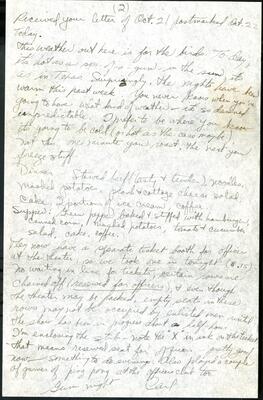 (2)
Received your letter of Oct. 21 postmarked Oct. 22
today.
This weather out here is for the birds. To-day,
it's hot as a son of a gun in the sun, it's
as in Texas. Surprisingly, the nights have been
warm this past week. You never know when you're
going to have what kind of weather - it's so darned
unpredictable. I prefer to be where you know
it's going to be cold (or hot as the case may be),
not the one minute you roast, the next you
freeze stuff.
Dinner - Stewed beef (tasty & tender), noodles,
mashed potatoes, salad & cottage cheese salad,
cake, 2 portions of ice cream, coffee.
Supper: Green pepper baked & stuffed with hamburger,
canned corn, mashed potatoes, tomato & cucumber
salad, cake, coffee.
They now have a separate ticket booth for officers
at the theater, so we took one in tonight ($.15)
no waiting in line for tickets, certain rows are
chained off (reserved for officers), & even though
the theater may be packed, empty seats in these
rows may not be occupied by enlisted men until
the show has been in progress about a half hour.
I'm enclosing the stub - note the "X" in ink on the ticket
that means reserved seat for officer. Pretty good
now - something to do evenings. Also played a couple
of games of ping pong at the officers club too.
Gum night Carl